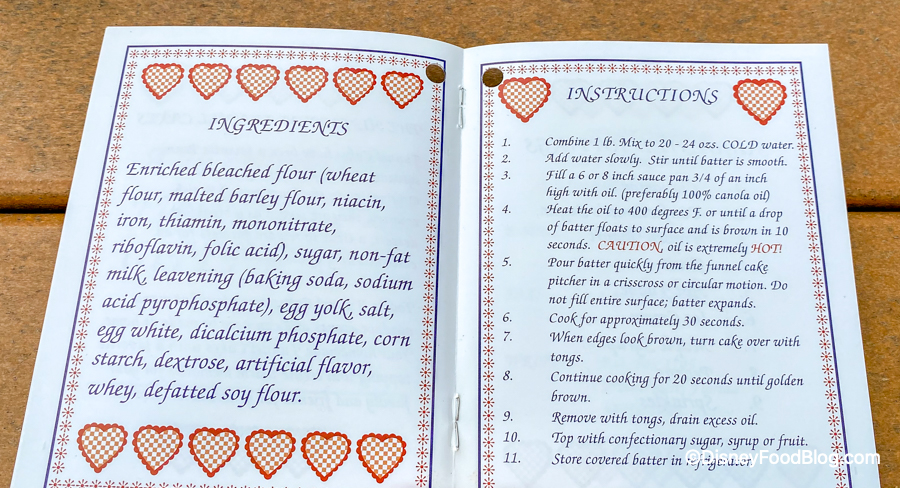 INGREDIENTS
Enriched bleached flour (wheat
flour, malted barley flour, niacin,
iron, thiamin, mononitrate,
riboflavin, folic acid), sugar, non-fat
milk, leavening (baking soda, sodium
acid pyrophosphate), egg yolk, salt,
egg white, dicalcium phosphate, corn
starch, dextrose, artificial flavor,
whey, defatted soy flour.
INSTRUCTIONS
1. Combine 1 lb. Mix to 20 - 24 ozs. COLD water.
2. Add water slowly. Stir until batter is smooth.
3. Fill a 6 or 8 inch sauce pan 3/4 of an inch
high with oil. (preferably 100% canola oil)
4. Heat the oil to 400 degrees F. or until a drop
of batter floats to surface and is brown in 10
seconds. CAUTION, oil is extremely HOT!
5. Pour batter quickly from the funnel cake
pitcher in a crisscross or circular motion. Do
not fill entire surface; batter expands.
6. Cook for approximately 30 seconds.
7. When edges look brown, turn cake over with
tongs.
8. Continue cooking for 20 seconds until golden
brown.
9. Remove with tongs, drain excess oil.
10. Top with confectionary sugar, syrup or fruit.
11. Store covered batter in refrigerator.
©DisneyFoodBlog.com